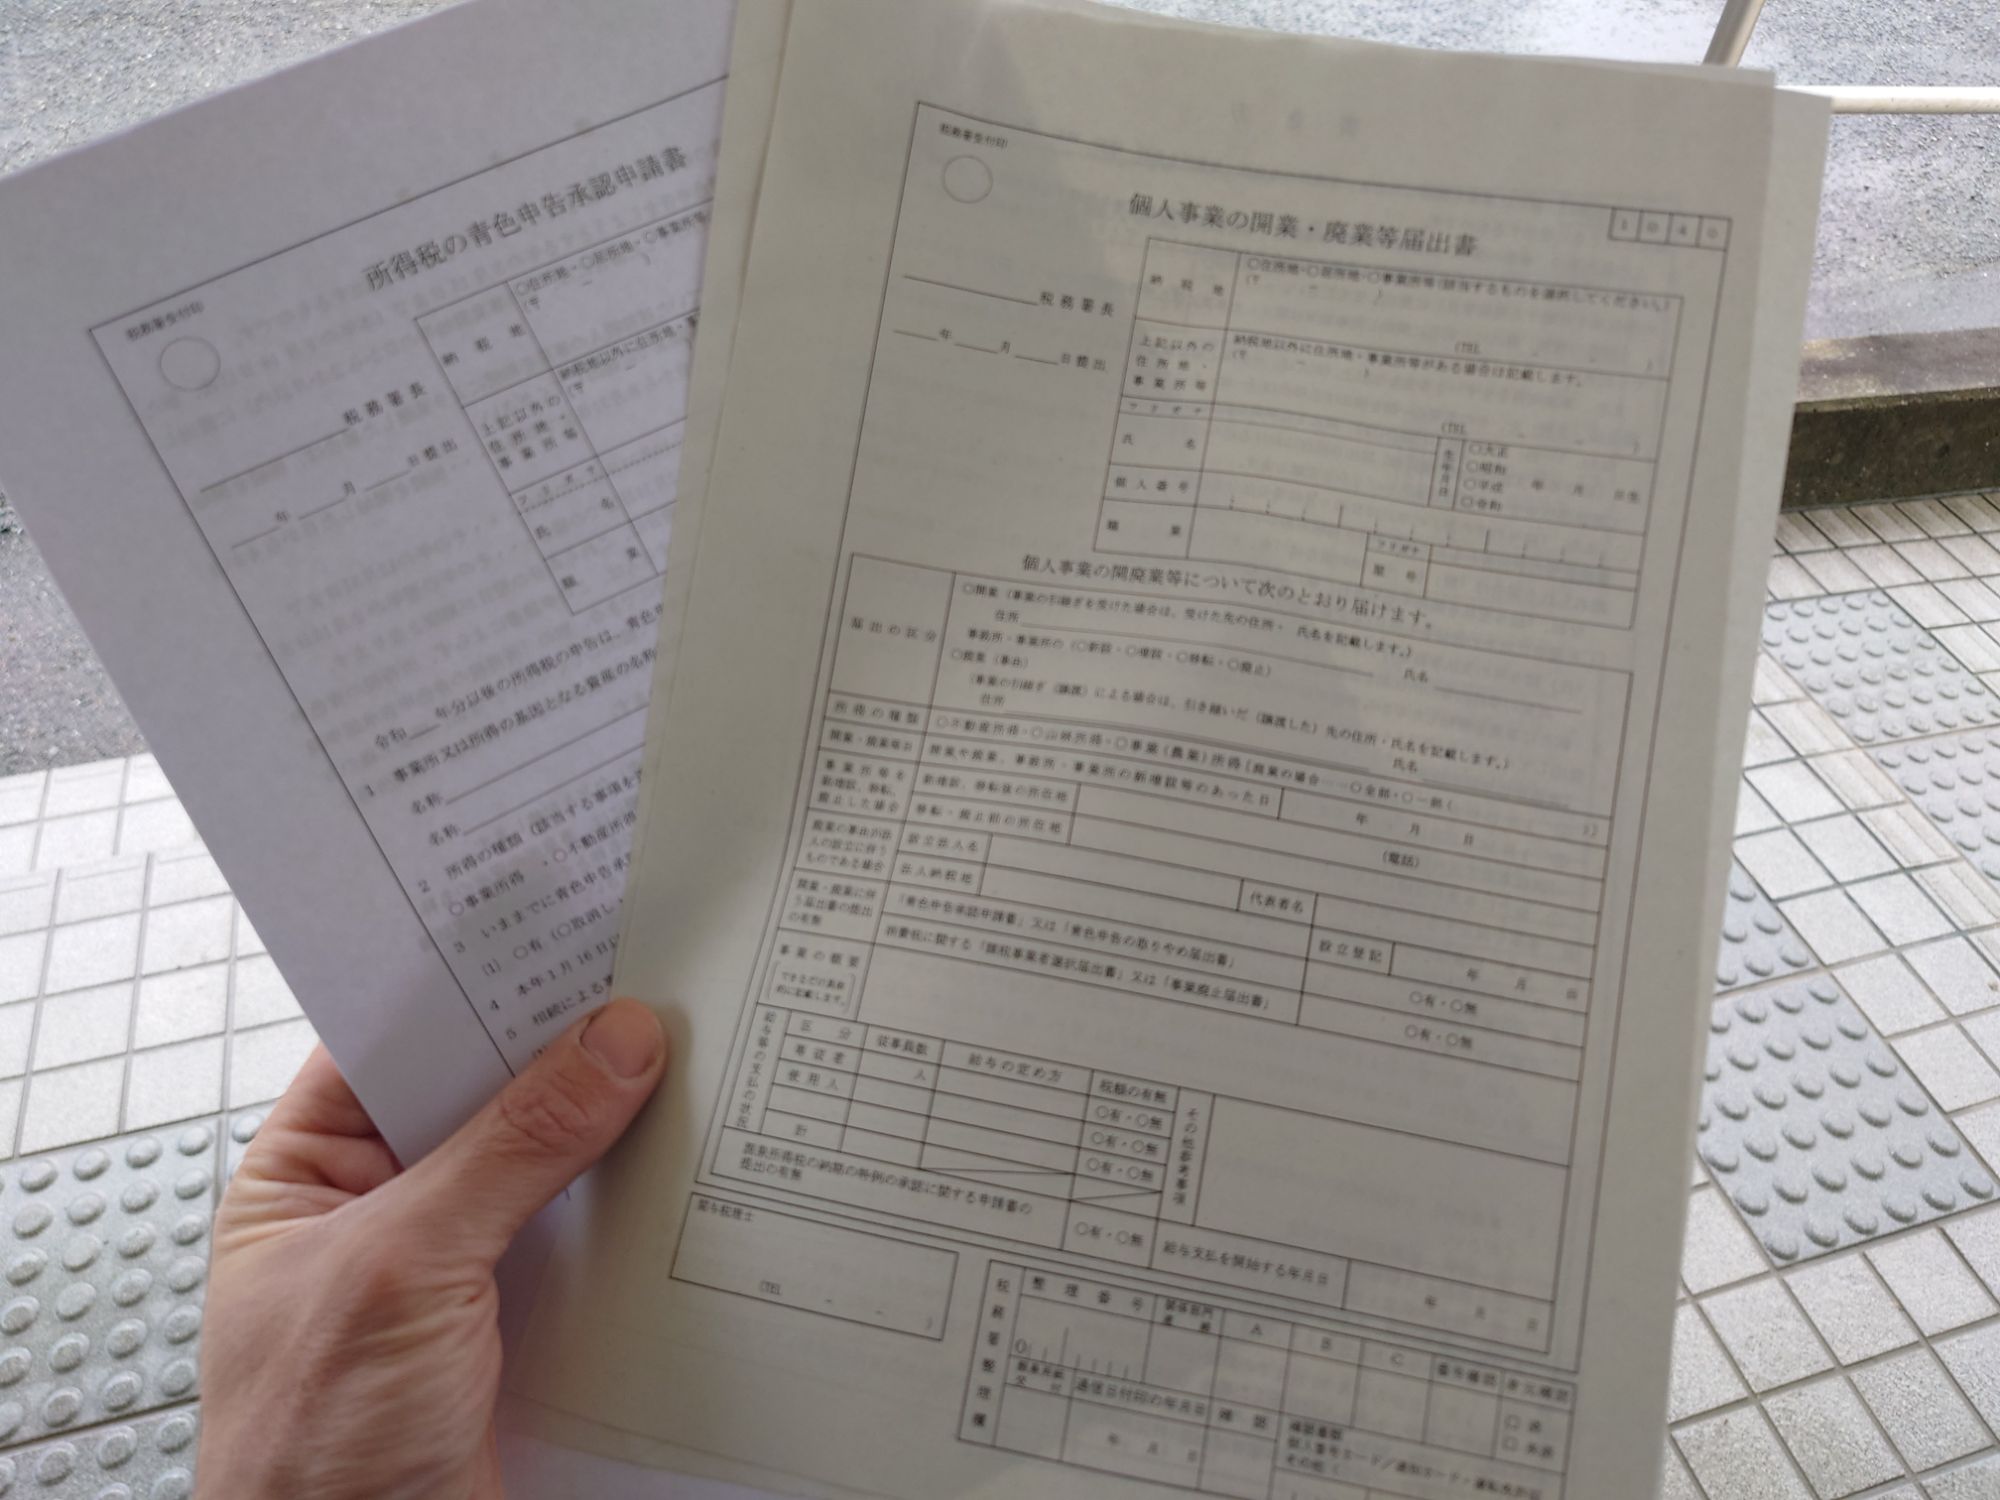 税務署受付印
所得税の青色申告承認申請書
税務署長
年 月 日提出
納税地
○住所地・○居所地・○事業所等
(〒 －
上記以外の
住所地・
事業所等
納税地以外に住所地・事
(〒 －
フリガナ
氏名
職業
令和 年分以後の所得税の申告は、青色申
1 事業所又は所得の基因となる資産の名称
名称
名称
2 所得の種類（該当する事項を
○事業所得 ・○不動産所得
3 いままでに青色申告承
(1) ○有（○取消し
4 本年1月16日以
5 相続による事
(1)
税務署受付印
1040
個人事業の開業・廃業等届出書
税務署長
年 月 日提出
納税地
○住所地・○居所地・○事業所等(該当するものを選択してください。)
(〒 － )
(TEL － － )
上記以外の
住所地・
事業所等
納税地以外に住所地・事業所等がある場合は記載します。
(〒 － )
(TEL － － )
フリガナ
氏名
生年月日
○大正
○昭和
○平成
○令和
年 月 日生
個人番号
職業
フリガナ
屋号
個人事業の開廃業等について次のとおり届けます。
届出の区分
○開業（事業の引継ぎを受けた場合は、受けた先の住所・氏名を記載します。）
住所 氏名
事務所・事業所の（○新設・○増設・○移転・○廃止）
○廃業（事由）
（事業の引継ぎ（譲渡）による場合は、引き継いだ（譲渡した）先の住所・氏名を記載します。）
住所 氏名
所得の種類
○不動産所得・○山林所得・○事業(農業)所得〔廃業の場合……○全部・○一部（ ）〕
開業・廃業等日
開業や廃業、事務所・事業所の新増設等のあった日
年 月 日
事業所等を
新増設、移転、
廃止した場合
新増設、移転後の所在地
(電話)
移転・廃止前の所在地
廃業の事由が法
人の設立に伴う
ものである場合
設立法人名
代表者名
法人納税地
設立登記
年 月 日
開業・廃業に伴
う届出書の提出
の有無
「青色申告承認申請書」又は「青色申告の取りやめ届出書」
○有・○無
消費税に関する「課税事業者選択届出書」又は「事業廃止届出書」
○有・○無
事業の概要
できるだけ具体
的に記載します。
給与等の支払の状況
区分
従事員数
給与の定め方
税額の有無
専従者
人
○有・○無
使用人
○有・○無
○有・○無
計
その他参考事項
源泉所得税の納期の特例の承認に関する申請書の
提出の有無
○有・○無
給与支払を開始する年月日
年 月 日
関与税理士
(TEL － － )
税務署整理欄
整理番号
関係部門
連絡
A
B
C
番号確認
身元確認
0
□ 済
□ 未済
通信日付印の年月日
確認
年 月 日
確認書類
個人番号カード／通知カード・運転免許証
その他（